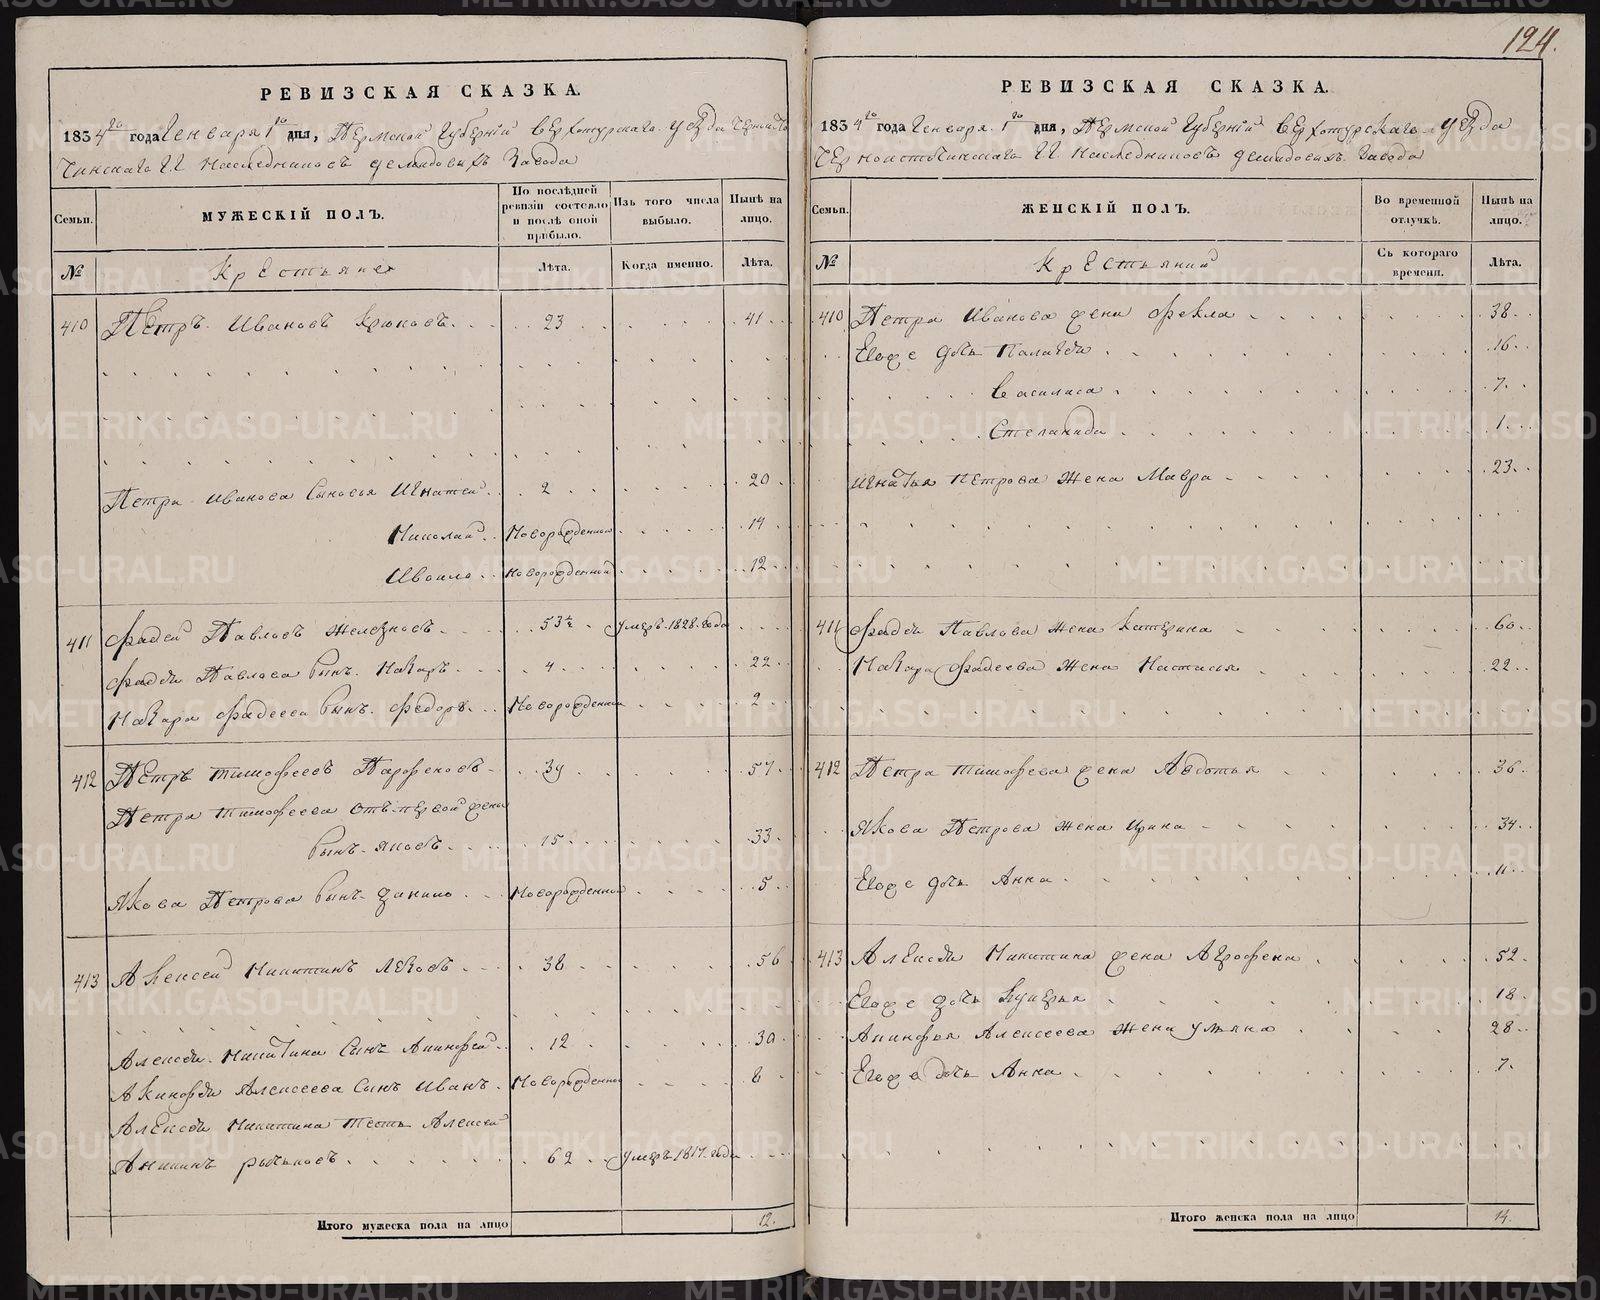 124.
РЕВИЗСКАЯ СКАЗКА.
1834го года Генваря 1го дня, Пермской Губернїи Верхотурскаго уезда Черноисто
чинскаго Г.Г. Наследниковъ Демидовыхъ Завода
Семьи.
МУЖЕСКІЙ ПОЛЪ.
По послѣдней ревизіи состояло и послѣ оной прибыло.
Изъ того числа выбыло.
Нынѣ на лицо.
№
Крестьяне
Лѣта.
Когда именно.
Лѣта.
410 Петръ Ивановъ Крюковъ 23 41
Петра Иванова Сыновья Игнатей 2 20
Николай Новорожденной 14
Ивоило Новорожденной 12
411 Фадей Павловъ Железновъ 53½ Умеръ 1828 года
Фадея Павлова Сынъ Макаръ 4 22
Макара Фадеева Сынъ Федоръ Новорожденной 2
412 Петръ Тимофеевъ Парфеновъ 39 57
Петра Тимофеева отъ первой жены
Сынъ Яковъ 15 33
Якова Петрова Сынъ Данило Новорожденной 5
413 Алексей Никитинъ 38 56
Алексея Никитина Сынъ Акинфей 12 30
Акинфея Алексеева Сынъ Иванъ Новорожденной 8
Алексея Никитина Тесть Алексей
Аникинъ Рычковъ 62 Умеръ 1817 года
Итого мужеска пола на лицо 12.
РЕВИЗСКАЯ СКАЗКА.
1834го года Генваря 1го дня, Пермской Губернїи Верхотурскаго уезда
Черноисточинскаго Г.Г. Наследниковъ Демидовыхъ Завода
Семьи.
ЖЕНСКІЙ ПОЛЪ.
Во временной отлучкѣ.
Нынѣ на лицо.
№
Крестьянки
Съ котораго времени.
Лѣта.
410 Петра Иванова жена Фекла 38
Его же дочь Палагея 16
Василиса 7
Степанида 1
Игнатья Петрова Жена Мавра 23
411 Фадея Павлова Жена Катерина 60
Макара Фадеева Жена Настасья 22
412 Петра Тимофеева жена Авдотья 36
Якова Петрова Жена Ирина 34
Его же дочь Анна 11
413 Алексея Никитина жена Аграфена 52
Его же дочь Лукерья 18
Акинфья Алексеева Жена Ульяна 28
Его же дочь Анна 7
Итого женска пола на лицо 14.
METRIKI.GASO-URAL.RU